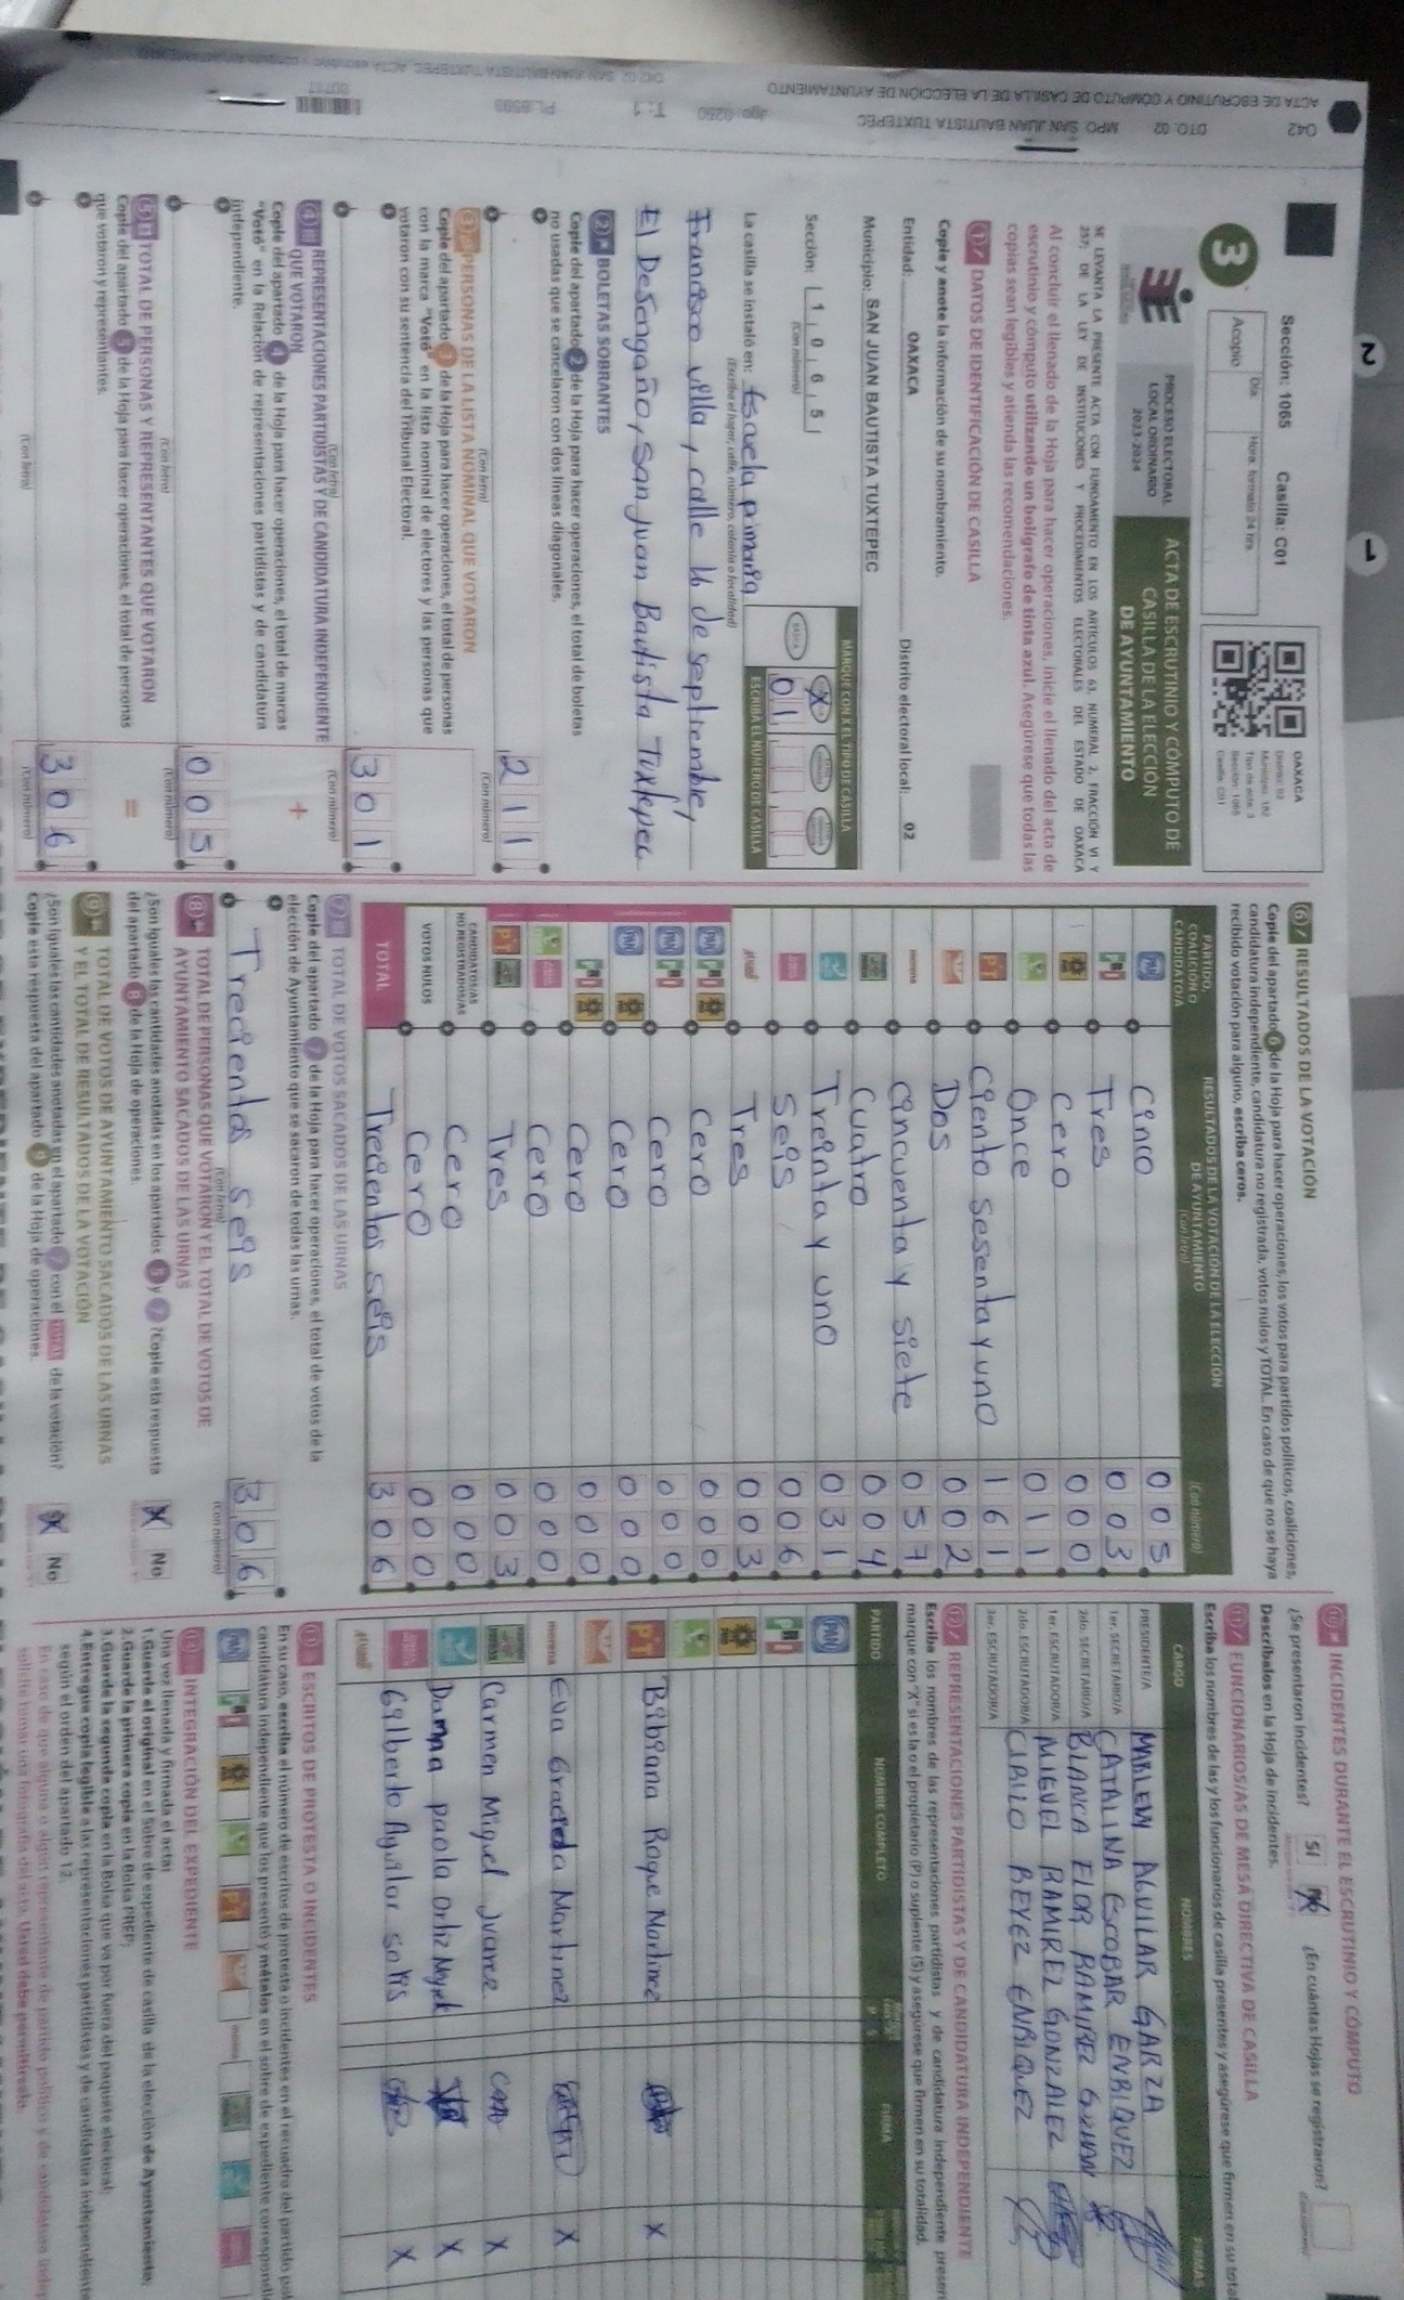 2
1
ACTA DE ESCRUTINIO Y CÓMPUTO DE CASILLA DE LA ELECCIÓN DE AYUNTAMIENTO
042 DTO. 02 MPO. SAN JUAN BAUTISTA TUXTEPEC
Sección: 1065 Casilla: C01
Acopio
Día
Hora, formato 24 hrs
OAXACA
Distrito: 02
Tipo de acta: 3
Sección: 1065
Casilla: C01
3
PROCESO ELECTORAL
LOCAL ORDINARIO
2023-2024
ACTA DE ESCRUTINIO Y CÓMPUTO DE
CASILLA DE LA ELECCIÓN
DE AYUNTAMIENTO
SE LEVANTA LA PRESENTE ACTA CON FUNDAMENTO EN LOS ARTÍCULOS 63, NUMERAL 2, FRACCIÓN VI Y
257; DE LA LEY DE INSTITUCIONES Y PROCEDIMIENTOS ELECTORALES DEL ESTADO DE OAXACA
Al concluir el llenado de la Hoja para hacer operaciones, inicie el llenado del acta de
escrutinio y cómputo utilizando un bolígrafo de tinta azul. Asegúrese que todas las
copias sean legibles y atienda las recomendaciones.
1 DATOS DE IDENTIFICACIÓN DE CASILLA
Copie y anote la información de su nombramiento.
Entidad: OAXACA Distrito electoral local: 02
Municipio: SAN JUAN BAUTISTA TUXTEPEC
Sección: 1 0 6 5
(Con número)
MARQUE CON X EL TIPO DE CASILLA
X
ESCRIBA EL NÚMERO DE CASILLA
01
La casilla se instaló en: Escuela primaria
(Escriba el lugar, calle, número, colonia o localidad)
Francisco villa, calle 16 de septiembre,
El Desengaño, San Juan Bautista Tuxtepec
2 BOLETAS SOBRANTES
Copie del apartado 2 de la Hoja para hacer operaciones, el total de boletas
no usadas que se cancelaron con dos líneas diagonales.
211
(Con letra) (Con número)
3 PERSONAS DE LA LISTA NOMINAL QUE VOTARON
Copie del apartado 3 de la Hoja para hacer operaciones, el total de personas
con la marca "Votó" en la lista nominal de electores y las personas que
votaron con su sentencia del Tribunal Electoral.
301
(Con letra) (Con número)
4 REPRESENTACIONES PARTIDISTAS Y DE CANDIDATURA INDEPENDIENTE
QUE VOTARON
Copie del apartado 4 de la Hoja para hacer operaciones, el total de marcas
"Votó" en la Relación de representaciones partidistas y de candidatura
independiente.
+
005
(Con letra) (Con número)
5 TOTAL DE PERSONAS Y REPRESENTANTES QUE VOTARON
Copie del apartado 5 de la Hoja para hacer operaciones, el total de personas
que votaron y representantes.
=
306
(Con letra) (Con número)
6 RESULTADOS DE LA VOTACIÓN
Copie del apartado 6 de la Hoja para hacer operaciones, los votos para partidos políticos, coaliciones,
candidatura independiente, candidatura no registrada, votos nulos y TOTAL. En caso de que no se haya
recibido votación para alguno, escriba ceros.
PARTIDO, COALICIÓN O CANDIDATO/A
RESULTADOS DE LA VOTACIÓN DE LA ELECCIÓN
DE AYUNTAMIENTO
(Con letra) (Con número)
PAN Cinco 005
PRI Tres 003
Cero 000
Once 011
PT Ciento sesenta y uno 161
Dos 002
morena Cincuenta y siete 057
Cuatro 004
Treinta y uno 031
Seis 006
Tres 003
PAN PRI Cero 000
PAN PRI Cero 000
PAN Cero 000
PRI Cero 000
Cero 000
PT Tres 003
CANDIDATOS/AS NO REGISTRADOS/AS Cero 000
VOTOS NULOS Cero 000
TOTAL Trecientos seis 306
7 TOTAL DE VOTOS SACADOS DE LAS URNAS
Copie del apartado 7 de la Hoja para hacer operaciones, el total de votos de la
elección de Ayuntamiento que se sacaron de todas las urnas.
Trecientos seis 306
(Con letra) (Con número)
8 TOTAL DE PERSONAS QUE VOTARON Y EL TOTAL DE VOTOS DE
AYUNTAMIENTO SACADOS DE LAS URNAS
¿Son iguales las cantidades anotadas en los apartados 5 y 7? Copie esta respuesta
del apartado 8 de la Hoja de operaciones.
X No
9 TOTAL DE VOTOS DE AYUNTAMIENTO SACADOS DE LAS URNAS
Y EL TOTAL DE RESULTADOS DE LA VOTACIÓN
¿Son iguales las cantidades anotadas en el apartado 7 con el TOTAL de la votación?
Copie esta respuesta del apartado 9 de la Hoja de operaciones.
X No
10 INCIDENTES DURANTE EL ESCRUTINIO Y CÓMPUTO
¿Se presentaron incidentes? SÍ X ¿En cuántas Hojas se registraron?
Descríbalos en la Hoja de incidentes.
11 FUNCIONARIOS/AS DE MESA DIRECTIVA DE CASILLA
Escriba los nombres de las y los funcionarios de casilla presentes y asegúrese que firmen en su total
CARGO NOMBRES FIRMAS
PRESIDENTE/A MARLENY AGUILAR GARZA
1er. SECRETARIO/A CATALINA ESCOBAR ENRIQUEZ
2do. SECRETARIO/A BLANCA FLOR RAMIREZ
1er. ESCRUTADOR/A MIGUEL RAMIREZ GONZALEZ
2do. ESCRUTADOR/A CIRILO REYEZ ENRIQUEZ
3er. ESCRUTADOR/A
12 REPRESENTACIONES PARTIDISTAS Y DE CANDIDATURA INDEPENDIENTE
Escriba los nombres de las representaciones partidistas y de candidatura independiente presen
marque con "X" si es la o el propietario (P) o suplente (S) y asegúrese que firmen en su totalidad.
PARTIDO NOMBRE COMPLETO P S FIRMA
PAN
PRI
PT Bibiana Roque Martinez X
morena Eva Graciela Martinez X
Carmen Miguel Juarez X
Danna paola Ortiz X
Gilberto Aguilar solis X
13 ESCRITOS DE PROTESTA O INCIDENTES
En su caso, escriba el número de escritos de protesta o incidentes en el recuadro del partido pol
candidatura independiente que los presentó y métalos en el sobre de expediente correspondi
PAN PRI PT morena
14 INTEGRACIÓN DEL EXPEDIENTE
Una vez llenada y firmada el acta:
1. Guarde el original en el Sobre de expediente de casilla de la elección de Ayuntamiento;
2. Guarde la primera copia en la Bolsa PREP;
3. Guarde la segunda copia en la Bolsa que va por fuera del paquete electoral;
4. Entregue copia legible a las representaciones partidistas y de candidatura independiente
según el orden del apartado 12.
En caso de que alguna o algún representante de partido político o de candidatura indep
solicite tomar una fotografía del acta, usted debe permitírselo.